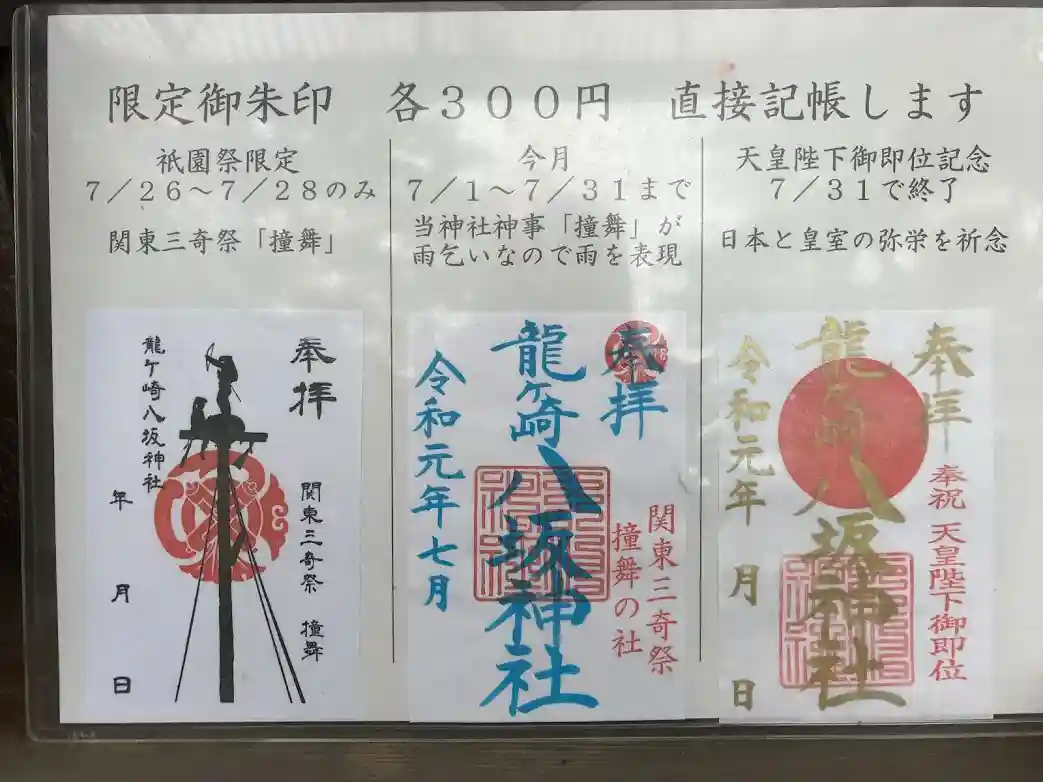 限定御朱印　各３００円　直接記帳します
祇園祭限定
７／２６～７／２８のみ
関東三奇祭「撞舞」
奉拝
関東三奇祭　撞舞
龍ケ崎八坂神社
年　月　日
今月
７／１～７／３１まで
当神社神事「撞舞」が
雨乞いなので雨を表現
奉拝
関東三奇祭
撞舞の社
龍ヶ崎八坂神社
令和元年七月
天皇陛下御即位記念
７／３１で終了
日本と皇室の弥栄を祈念
奉拝
奉祝　天皇陛下御即位
龍ヶ崎八坂神社
令和元年　月　日